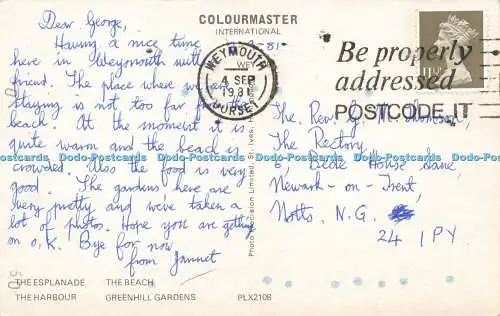 COLOURMASTER
INTERNATIONAL
Dear George,
Having a nice time
here in Weymouth with
friend. The place where we're
staying is not too far from the
beach. At the moment it is
quite warm and the beach is
crowded. Also the food is very
good. The gardens here are
very pretty and we've taken a
lot of photos. Hope you are getting
on O.K. Bye for now
from Jannet
THE ESPLANADE THE BEACH
THE HARBOUR GREENHILL GARDENS PLX2108
WEYMOUTH
4 SEP
1981
DORSET
Be properly
addressed
POSTCODE IT
The Rev. G. M.
The Rectory,
6, Bede House Lane,
Newark-on-Trent,
Notts. N.G.
24 1PY
Photo Precision Limited, St. Ives,
Dodo-Postcards Dodo-Postcards Dodo-Postcards Dodo-Postcards